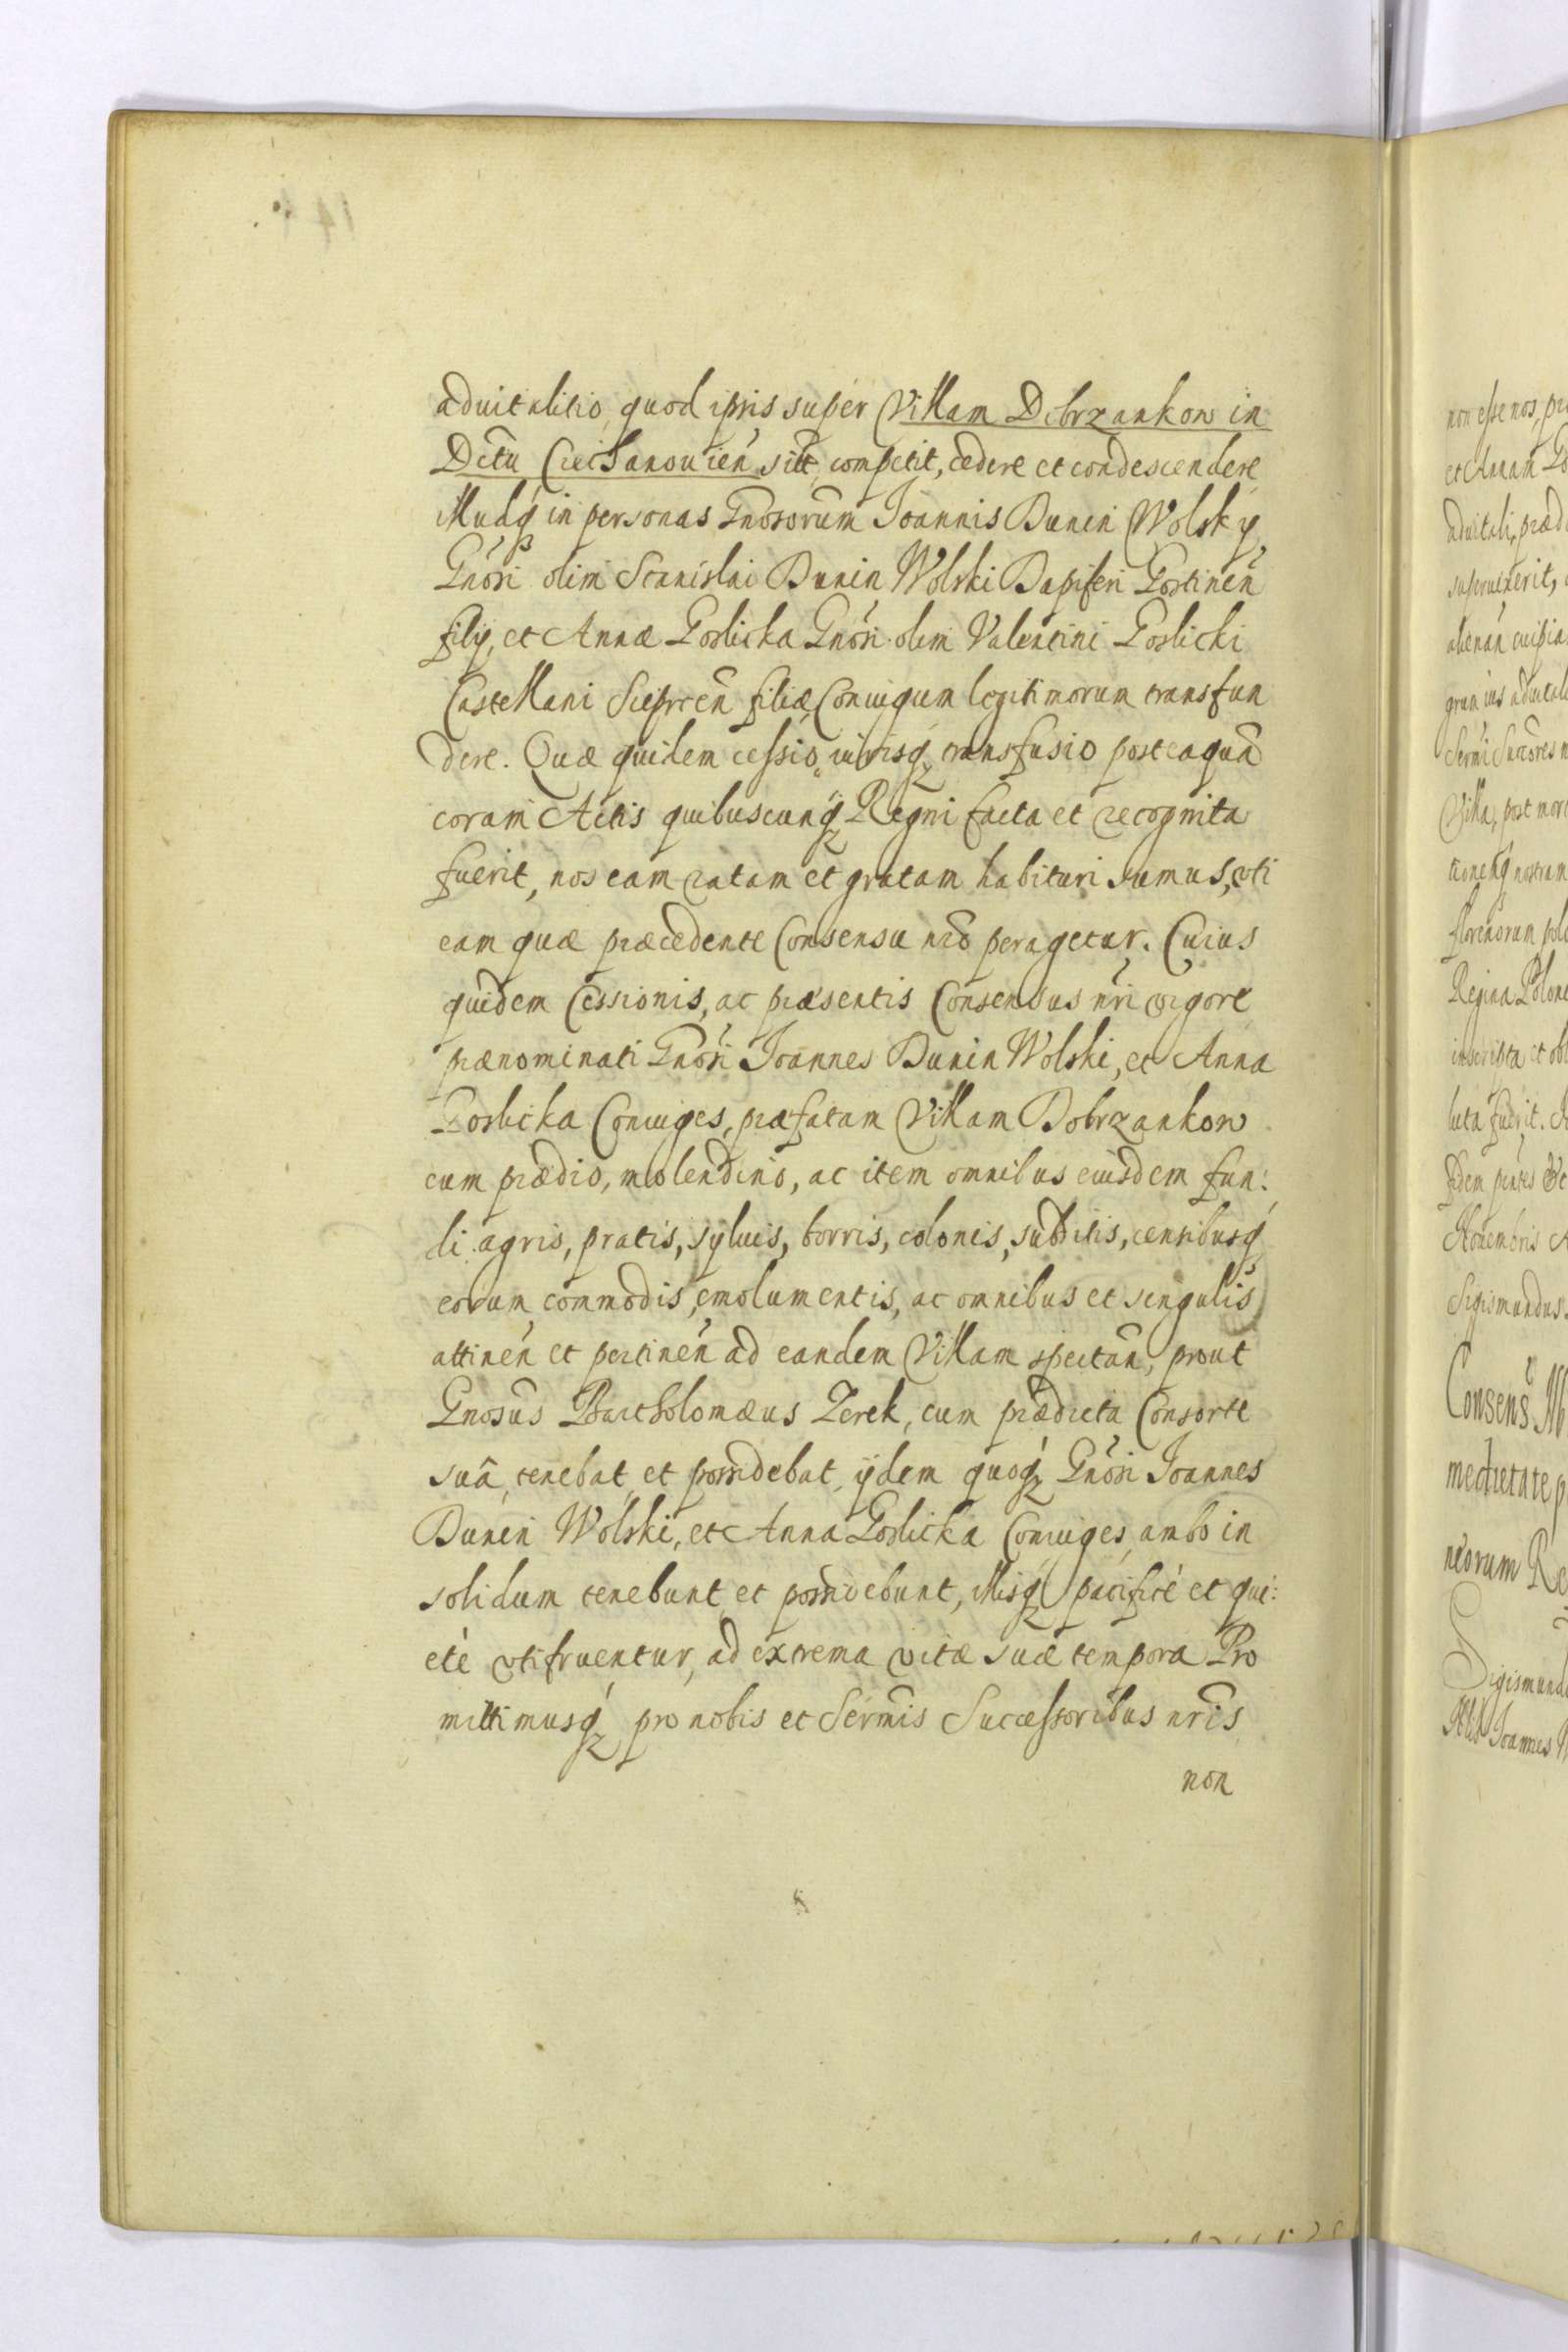 aduitalitio, quod ipsis super Villam Dobrzankow in
Dctu Ciechanouien̄ sitt competit, cedere et condescendere
illudq́ in personas Gnosorum Ioannis Dunin Wolsky,
Gnosi olim Stanislai Dunin Wolski Dapiferi Gostinen̄
filij, et Annæ Goslicka Gnosi olim Valentini Goslicki
Castellani Sieprcen̄ filiæ, Coniugum legitimorum transfun
dere. Quæ quidem cessio, iurisq́ transfusio posteaquā
coram Actis quibuscunq́ Regni facta et recognita
fuerit, nos eam ratam et gratam habituri sumus, vti
eam quæ præcedente Consensu nr̄o peragetur. Cuius
quidem Cessionis, ac præsentis Consensus nr̄i vigore
prænominati Gnosi Ioannes Dunin Wolski, et Anna
Goslicka Coniuges, præfatam Villam Dobrzankow
cum prædio, molendino, ac item omnibus eiusdem fun:
di agris, pratis, syluis, borris, colonis, subditis, censibusq́
eorum, commodis, emolumentis, ac omnibus et singulis
attinen̄ et pertinen̄ ad eandem Villam spectan̄, prout
Gnosus Bartholomæus Zerek, cum prædicta Consorte
suâ, tenebat et possidebat, ijdem quoq́ Gnosi Ioannes
Dunin Wolski, et Anna Goslicka Coniuges, ambo in
solidum tenebunt et possidebunt, illisq́ pacificè et qui:
etè vtifruentur, ad extrema vitæ suæ tempora Pro
mittimusq́ pro nobis et Serm̄is Successoribus nr̄is,
non
non esse nos, 
et Annam
aduitali,
superuixerit,
alienan̄ cuipia
Serm̄i Succores
Villa, post
tioneq́ nostram
florenorum
Regina
inscripta et
luta fuerit.
fidem
Nouembris
Sigismundus
Consens̄
medietate
Sigismund
Ioannes